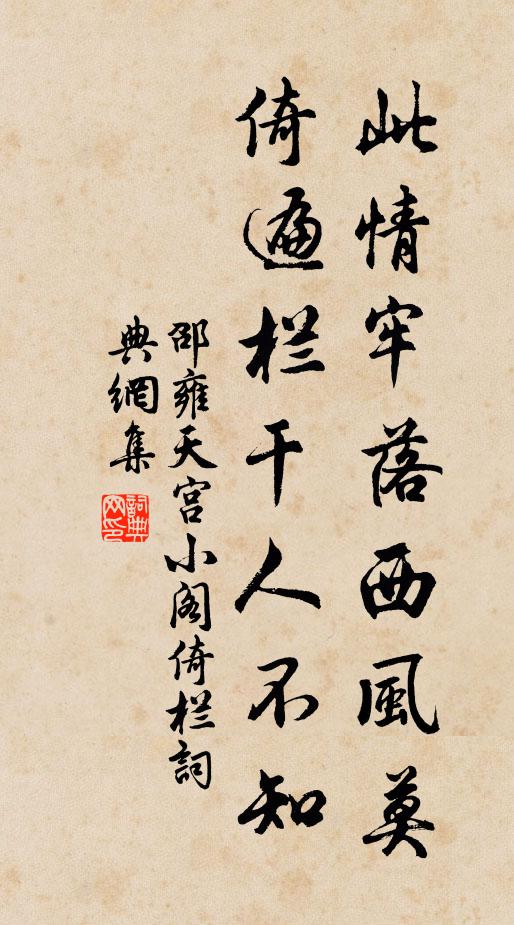 此情牢落西風莫
倚遍栏干人不知
邵雍天宫小阁倚栏詞
典網集
詞典
网印